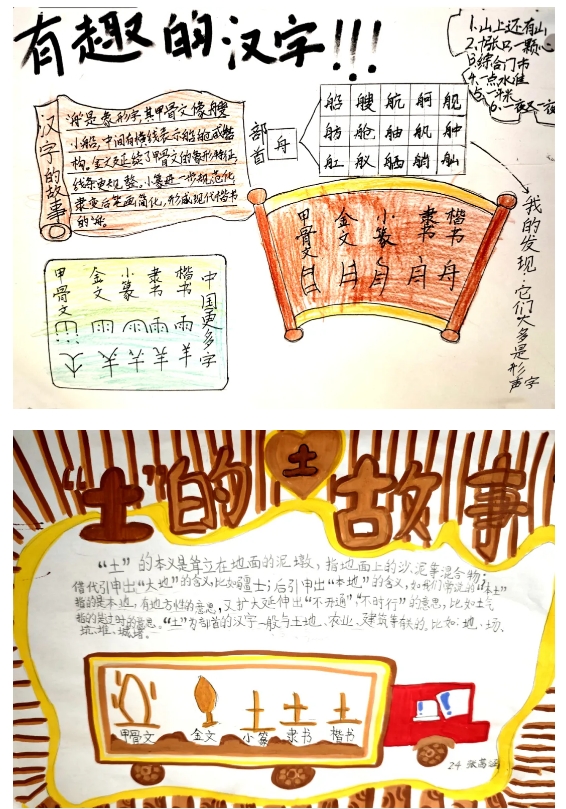 有趣的汉字!!!
1.山上还有山
2.一张口一颗心
3.综合门市
4.一点水准
5.一千米
6.一夜又一夜
汉字的故事
舟是象形字其甲骨文像艘
小船,中间有横线表示船舱或结
构。金文延续了甲骨文的象形特征,
线条更规整。小篆进一步规范化,
隶变后笔画简化,形成现代楷书
的舟。
部首
舟
船 艘 航 舸 舰
舫 舱 舳 舤 舯
舡 舣 舾 艄 舢
甲骨文 金文 小篆 隶书 楷书
舟
我的发现:它们大多是形声字
甲骨文 金文 小篆 隶书 楷书
中国更多字
雨
羊
“土”的故事
土
“土”的本义是耸立在地面的泥墩,指地面上的沙泥等混合物;
借代引申出“大地”的含义,比如疆土;后引申出“本地”的含义,如我们常说的“本土”
指的是本地,有地方性的意思,又扩大延伸出“不开通”,“不时行”的意思,比如土气
指的是过时的意思。“土”为部首的汉字一般与土地、农业、建筑等有关的。比如:地、场、
坑、堆、城等。
甲骨文 金文 小篆 隶书 楷书
24 张